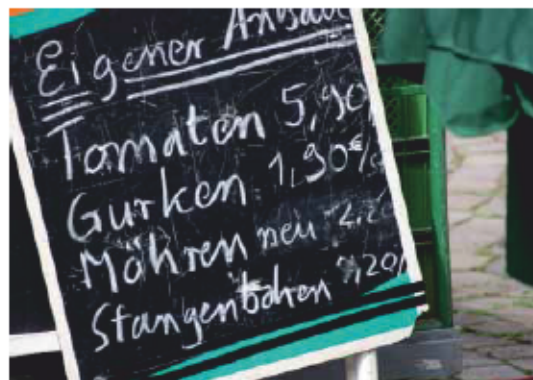 Eigener Anbau
Tomaten 5,90
Gurken 1,90€/
Möhren neu 2.20
Stangenbohnen 7,20